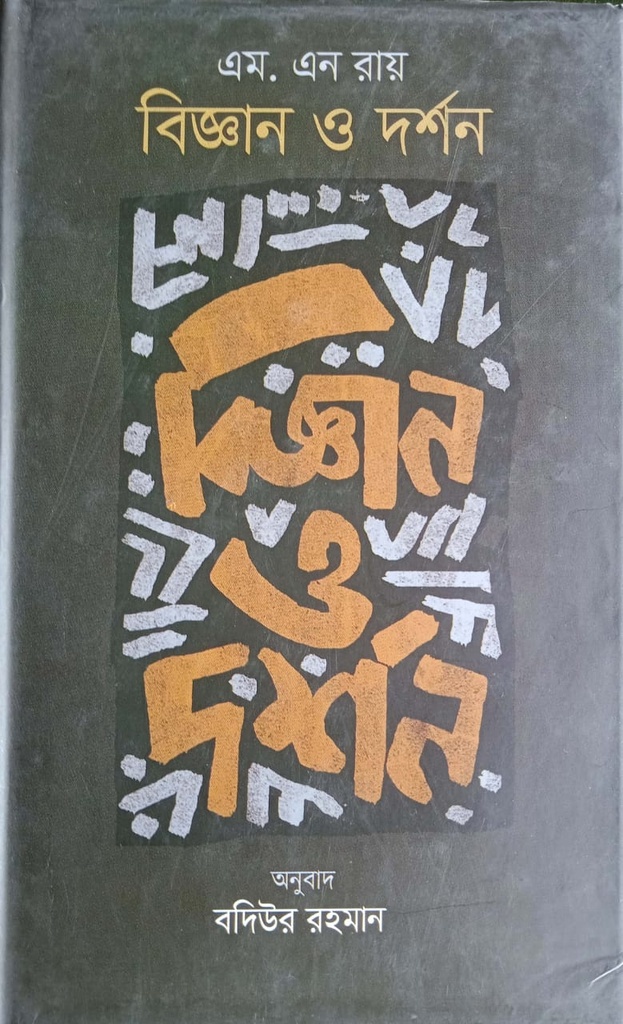 এম. এন রায়
বিজ্ঞান ও দর্শন
বিজ্ঞান
ও
দর্শন
অনুবাদ
বদিউর রহমান